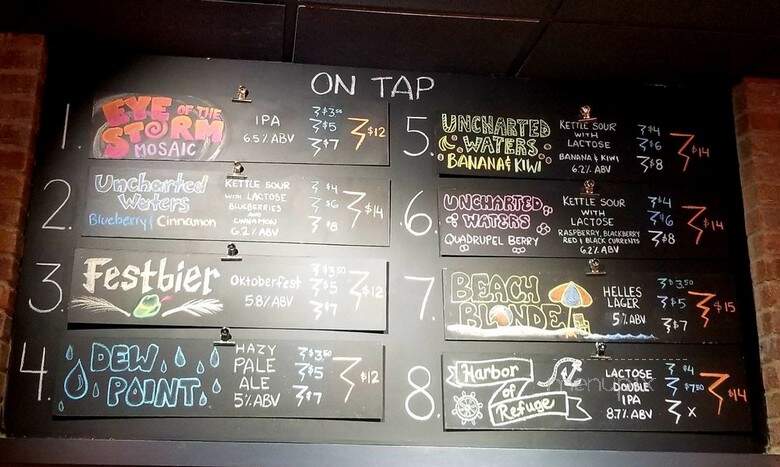 ON TAP
1.
EYE OF THE
STORM
MOSAIC
IPA
6.5% ABV
$3⁵⁰
$5
$7
$12
2.
Uncharted
Waters
Blueberry & Cinnamon
KETTLE SOUR
WITH LACTOSE
BLUEBERRIES
AND
CINNAMON
6.2% ABV
$4
$6
$8
$14
3.
Festbier
Oktoberfest
5.8% ABV
$3.50
$5
$7
$12
4.
DEW
POINT
HAZY
PALE
ALE
5% ABV
$3⁵⁰
$5
$7
$12
5.
UNCHARTED
WATERS
BANANA & KIWI
KETTLE SOUR
WITH
LACTOSE
BANANA & KIWI
6.2% ABV
$4
$6
$8
$14
6.
UNCHARTED
WATERS
QUADRUPEL BERRY
KETTLE SOUR
WITH
LACTOSE
RASPBERRY, BLACKBERRY
RED & BLACK CURRENTS
6.2% ABV
$4
$6
$8
$14
7.
BEACH
BLONDE
HELLES
LAGER
5% ABV
$3.50
$5
$7
$15
8.
Harbor
of
Refuge
LACTOSE
DOUBLE
IPA
8.7% ABV
$4
$7⁵⁰
X
$14